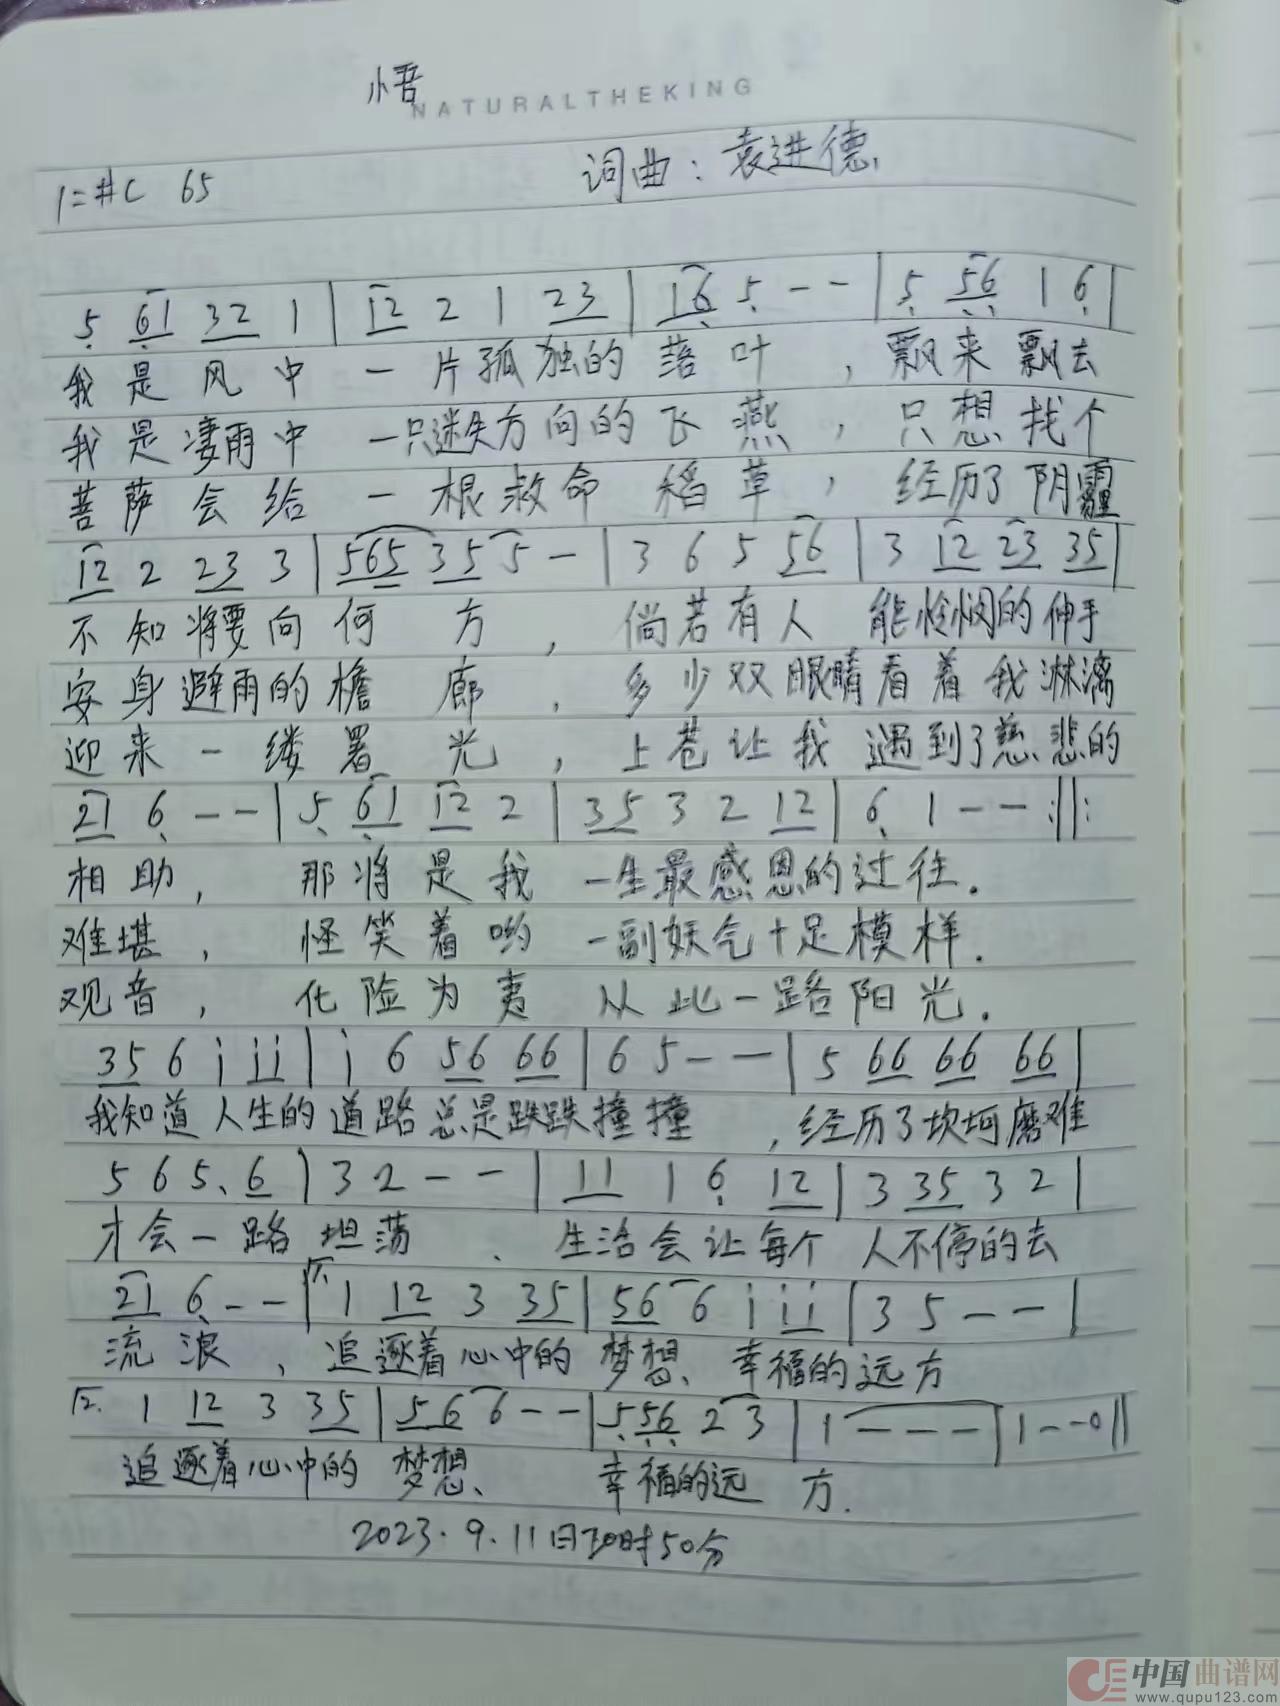 悟
NATURALTHEKING
词曲：袁进德
1=#C 65
5 61 32 1 | 12 2 1 23 | 16 5 - - | 5 56 1 6 |
我是风中一片孤独的落叶，飘来飘去
我是凄雨中一只迷失方向的飞燕，只想找个
菩萨会给一根救命稻草，经历了阴霾
12 2 23 3 | 565 35 5 - | 3 6 5 56 | 3 12 23 35 |
不知将要向何方，倘若有人能怜悯的伸手
安身避雨的檐廊，多少双眼睛看着我淋漓
迎来一缕署光，上苍让我遇到了慈悲的
21 6 - - | 5 61 12 2 | 35 3 2 12 | 6 1 - - :||:
相助，那将是我一生最感恩的过往.
难堪，怪笑着哟一副妖气十足模样.
观音，化险为夷从此一路阳光.
35 6 i ii | i 6 56 66 | 6 5 - - | 5 66 66 66 |
我知道人生的道路总是跌跌撞撞，经历了坎坷磨难
5 6 5. 6 | 3 2 - - | 11 1 6 12 | 3 35 3 2 |
才会一路坦荡、生活会让每个人不停的去
21 6 - - | 1. 1 12 3 35 | 56 6 i ii | 3 5 - - |
流浪，追逐着心中的梦想、幸福的远方
2. 1 12 3 35 | 56 6 - - | 556 2 3 | 1 - - - | 1 - - 0 ||
追逐着心中的梦想、幸福的远方.
2023.9.11日20时50分
中国曲谱网
www.qupu123.com